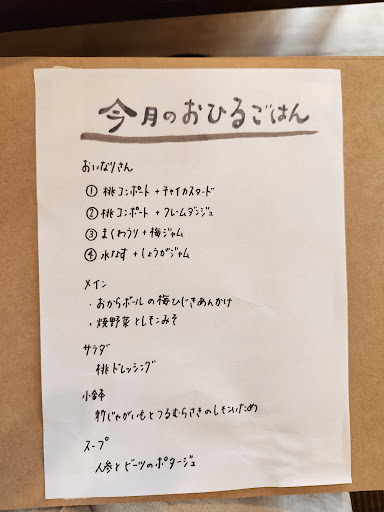 今月のおひるごはん
おいなりさん
① 桃コンポート + チャイカスタード
② 桃コンポート + クレームダンジュ
③ まくわうり + 梅ジャム
④ 水なす + しょうがジャム
メイン
・おからボールの梅ひじきあんかけ
・焼野菜とレモンみそ
サラダ
桃ドレッシング
小鉢
新じゃがいもとつるむらさきのレモンいため
スープ
人参とビーツのポタージュ